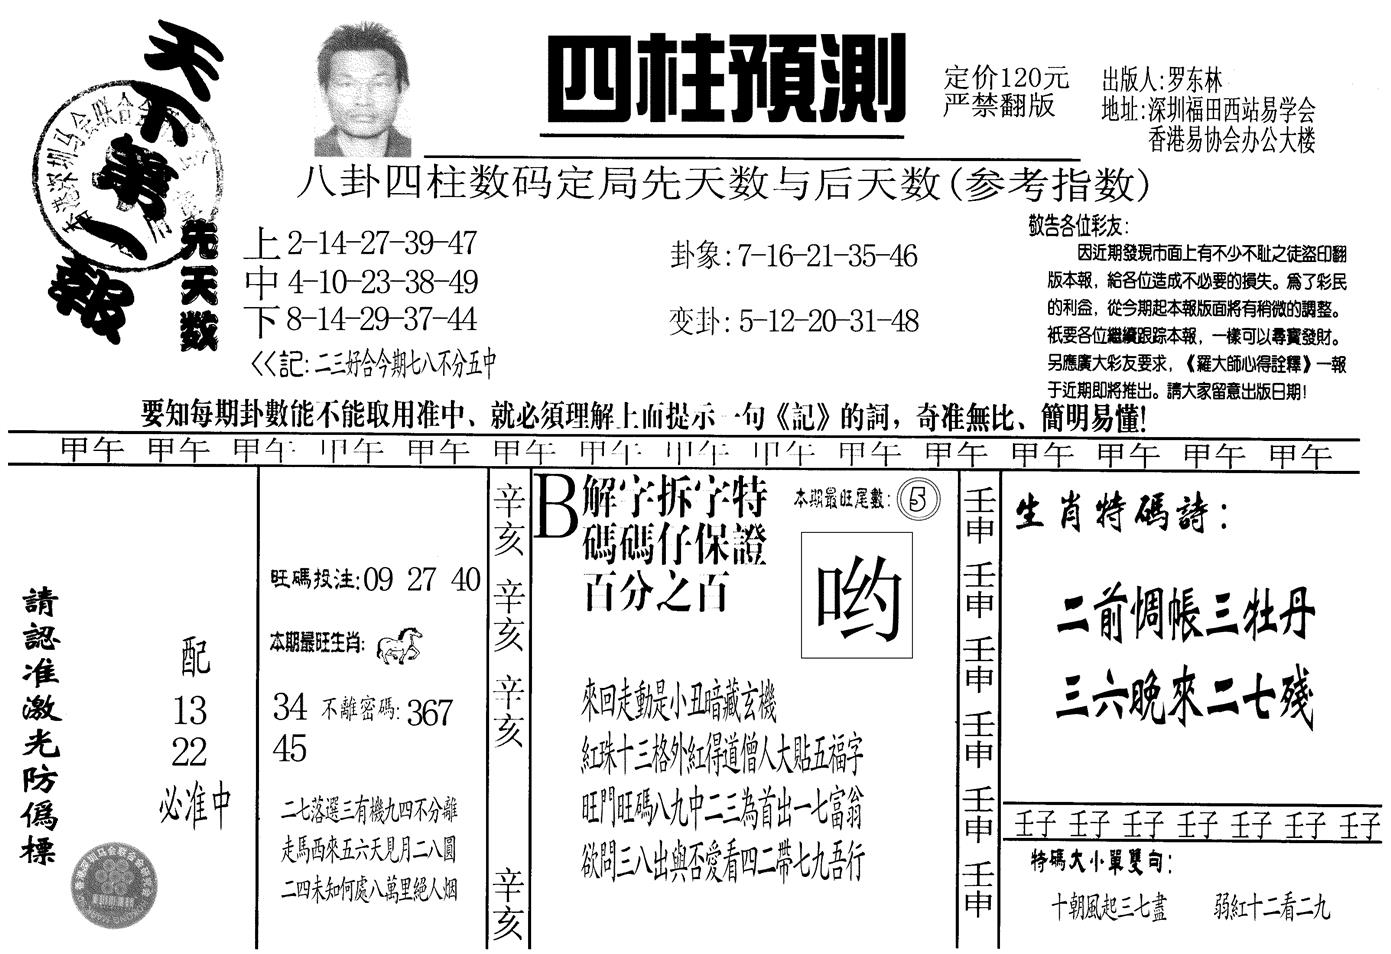 天下第一報
四柱預測
定价120元
严禁翻版
出版人:罗东林
地址:深圳福田西站易学会
香港易协会办公大楼
八卦四柱数码定局先天数与后天数(参考指数)
先天数
上 2-14-27-39-47
中 4-10-23-38-49
下 8-14-29-37-44
<<記:二三好合今期七八不分五中
卦象:7-16-21-35-46
变卦:5-12-20-31-48
敬告各位彩友:
因近期發現市面上有不少不耻之徒盜印翻
版本報，給各位造成不必要的損失。爲了彩民
的利益，從今期起本報版面將有稍微的調整。
衹要各位繼續跟踪本報，一樣可以尋寶發財。
另應廣大彩友要求，《羅大師心得詮釋》一報
于近期即將推出。請大家留意出版日期!
要知每期卦數能不能取用准中、就必須理解上面提示一句《記》的詞，奇准無比、簡明易懂!
甲午 甲午 甲午 甲午 甲午 甲午 甲午 甲午 甲午 甲午 甲午 甲午 甲午 甲午 甲午
請認准激光防僞標
配
13
22
必准中
旺碼投注:09 27 40
本期最旺生肖:
34 不離密碼:367
45
二七落選三有機九四不分離
走馬西來五六天見月二八圓
二四未知何處八萬里絕人烟
辛亥 辛亥 辛亥 辛亥
B 解字拆字特
碼碼仔保證
百分之百
本期最旺尾數:5
哟
來回走動是小丑暗藏玄機
紅珠十三格外紅得道僧人大貼五福字
旺門旺碼八九中二三為首出一七富翁
欲問三八出與否愛看四二帶七九吾行
壬申 壬申 壬申 壬申 壬申 壬申
生肖特碼詩:
二前惆帳三牡丹
三六晚來二七殘
壬子 壬子 壬子 壬子 壬子 壬子 壬子
特碼大小單雙句:
十朝風起三七盡 弱紅十二看二九